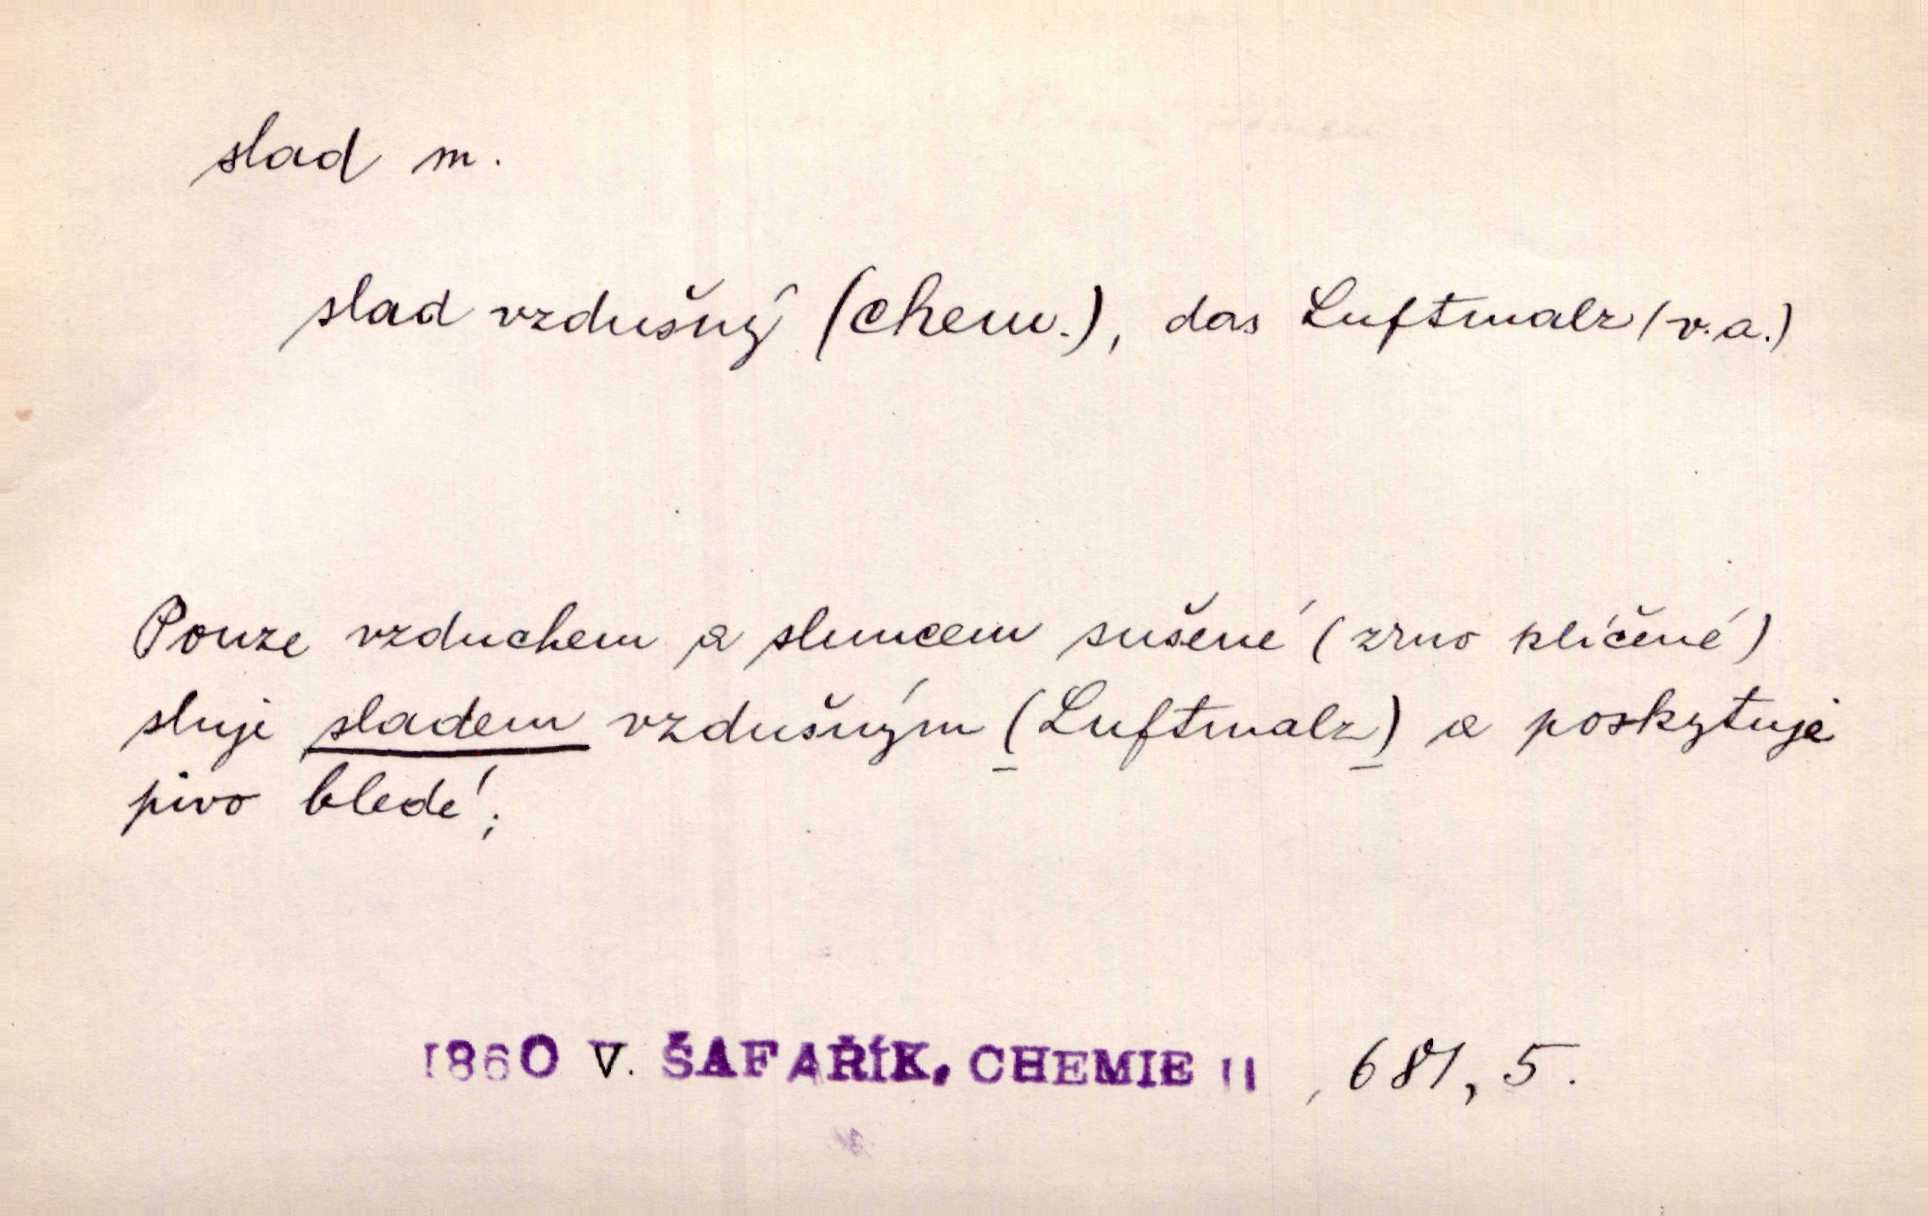 slad m.
slad vzdušný (chem.), das Luftmalz (v.a.)
Pouze vzduchem a sluncem sušené (zrno klíčené)
sluje sladem vzdušným (Luftmalz) a poskytuje
pivo bledé;
1860 V. ŠAFAŘÍK, CHEMIE II, 681, 5.